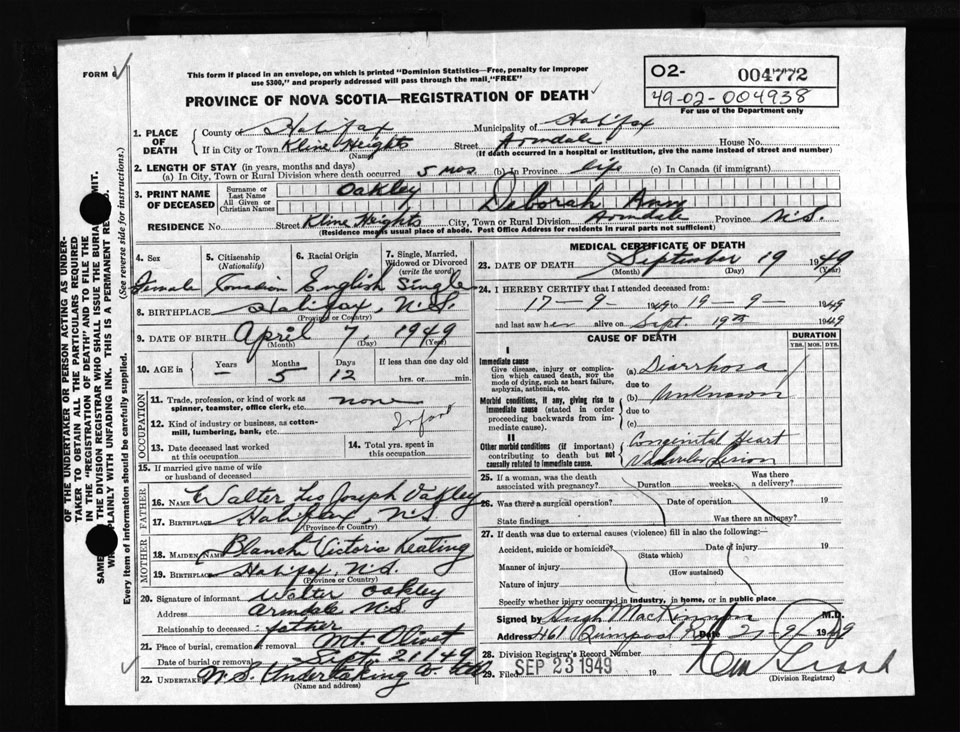 FORM 6
This form if placed in an envelope, on which is printed "Dominion Statistics—Free, penalty for improper
use $300," and properly addressed will pass through the mail, "FREE"
PROVINCE OF NOVA SCOTIA—REGISTRATION OF DEATH
O2- 004772
49-02-004938
For use of the Department only
1. PLACE OF DEATH
County of Halifax Municipality of Halifax
If in City or Town Kline Heights Street Armdale House No.
(Name) (If death occurred in a hospital or institution, give the name instead of street and number)
2. LENGTH OF STAY (in years, months and days)
(a) In City, Town or Rural Division where death occurred 5 mos. (b) In Province life (c) In Canada (if immigrant)
3. PRINT NAME OF DECEASED
Surname or Last Name Oakley
All Given or Christian Names Deborah Ann
RESIDENCE No. Street Kline Heights City, Town or Rural Division Armdale Province N.S.
(Residence means usual place of abode. Post Office Address for residents in rural parts not sufficient)
4. Sex
Female
5. Citizenship (Nationality)
Canadian
6. Racial Origin
English
7. Single, Married, Widowed or Divorced (write the word)
Single
8. BIRTHPLACE Halifax, N.S.
(Province or Country)
9. DATE OF BIRTH April 7 1949
(Month) (Day) (Year)
10. AGE in Years Months Days If less than one day old
— 5 12 hrs. or min.
OCCUPATION
11. Trade, profession, or kind of work as
spinner, teamster, office clerk, etc. none
12. Kind of industry or business, as cotton-
mill, lumbering, bank, etc.
13. Date deceased last worked
at this occupation
14. Total yrs. spent in
this occupation
15. If married give name of wife
or husband of deceased
FATHER
16. NAME Walter Leo Joseph Oakley
17. BIRTHPLACE Halifax, N.S.
(Province or Country)
MOTHER
18. MAIDEN NAME Blanch Victoria Keating
19. BIRTHPLACE Halifax, N.S.
(Province or Country)
20. Signature of informant Walter Oakley
Address Armdale N.S.
Relationship to deceased father
21. Place of burial, cremation or removal Mt. Olivet
Date of burial or removal Sept. 21/49
22. UNDERTAKER N.S. Undertaking Co. Ltd
(Name and address)
MEDICAL CERTIFICATE OF DEATH
23. DATE OF DEATH September 19 1949
(Month) (Day) (Year)
24. I HEREBY CERTIFY that I attended deceased from:
17–9– 1949 to 19–9– 1949
and last saw her alive on Sept. 19th 1949
CAUSE OF DEATH
DURATION
YRS. MOS. DYS.
I
Immediate cause
Give disease, injury or complica-
tion which caused death, not the
mode of dying, such as heart failure,
asphyxia, asthenia, etc.
(a) Diarrhoea
due to
Morbid conditions, if any, giving rise to
immediate cause (stated in order
proceeding backwards from im-
mediate cause).
(b) Unknown
due to
(c)
II
Other morbid conditions (if important)
contributing to death but not
causally related to immediate cause.
Congenital Heart
Lesion
25. If a woman, was the death
associated with pregnancy? Duration weeks. Was there
a delivery?
26. Was there a surgical operation? Date of operation 19
State findings Was there an autopsy?
27. If death was due to external causes (violence) fill in also the following:—
Accident, suicide or homicide? Date of injury 19
(State which)
Manner of injury
(How sustained)
Nature of injury
Specify whether injury occurred in industry, in home, or in public place
Signed by Hugh MacKinnon M.D.
Address 461 Quinpool Rd Date 21–9–1949
28. Division Registrar's Record Number
29. Filed SEP 23 1949 19
(Division Registrar)
OF THE UNDERTAKER OR PERSON ACTING AS UNDER-
TAKER TO OBTAIN ALL THE PARTICULARS REQUIRED
IN THE "REGISTRATION OF DEATH" AND TO FILE THE
THE DIVISION REGISTRAR WHO SHALL ISSUE THE BURIAL
PLAINLY WITH UNFADING INK. THIS IS A PERMANENT
(See reverse side for instructions.)
Every item of information should be carefully supplied.